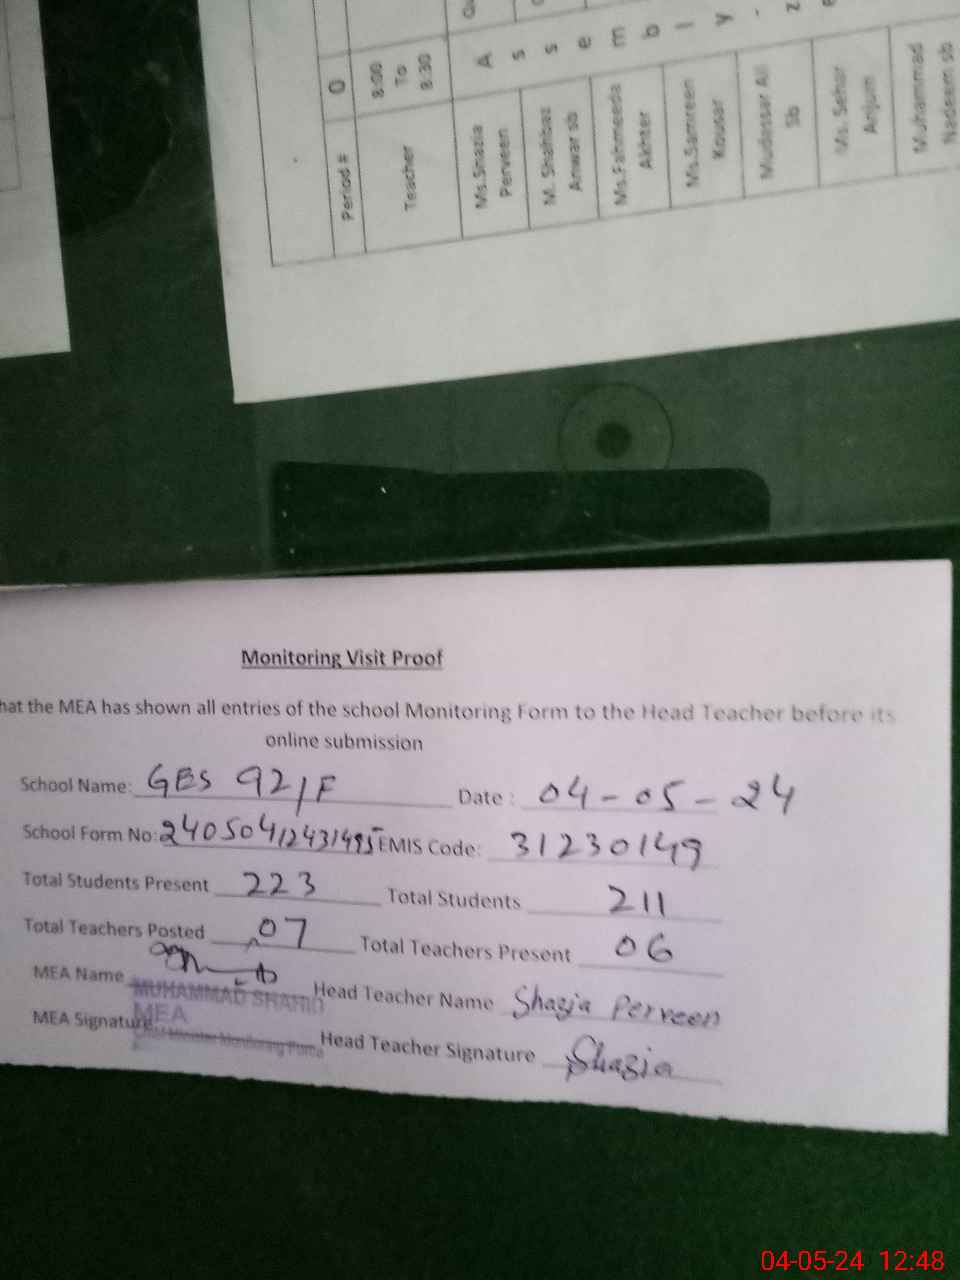 Period #
0
Teacher
8:00
To
8:30
Ms.Shazia
Perveen
M. Shahbaz
Anwar sb
Ms.Fahmeeda
Akhter
Ms.Samreen
Kousar
Mudassar Ali
Sb
Ms. Sehar
Anjum
Muhammad
Nadeem sb
A s s e m b l y
Monitoring Visit Proof
hat the MEA has shown all entries of the school Monitoring Form to the Head Teacher before its
online submission
School Name: GES 92/F Date : 04-05-24
School Form No: 24050412431495 EMIS Code: 31230149
Total Students Present 223 Total Students 211
Total Teachers Posted 07 Total Teachers Present 06
MEA Name MUHAMMAD Head Teacher Name Shazia Perveen
MEA Signature MEA Head Teacher Signature Shazia
04-05-24 12:48